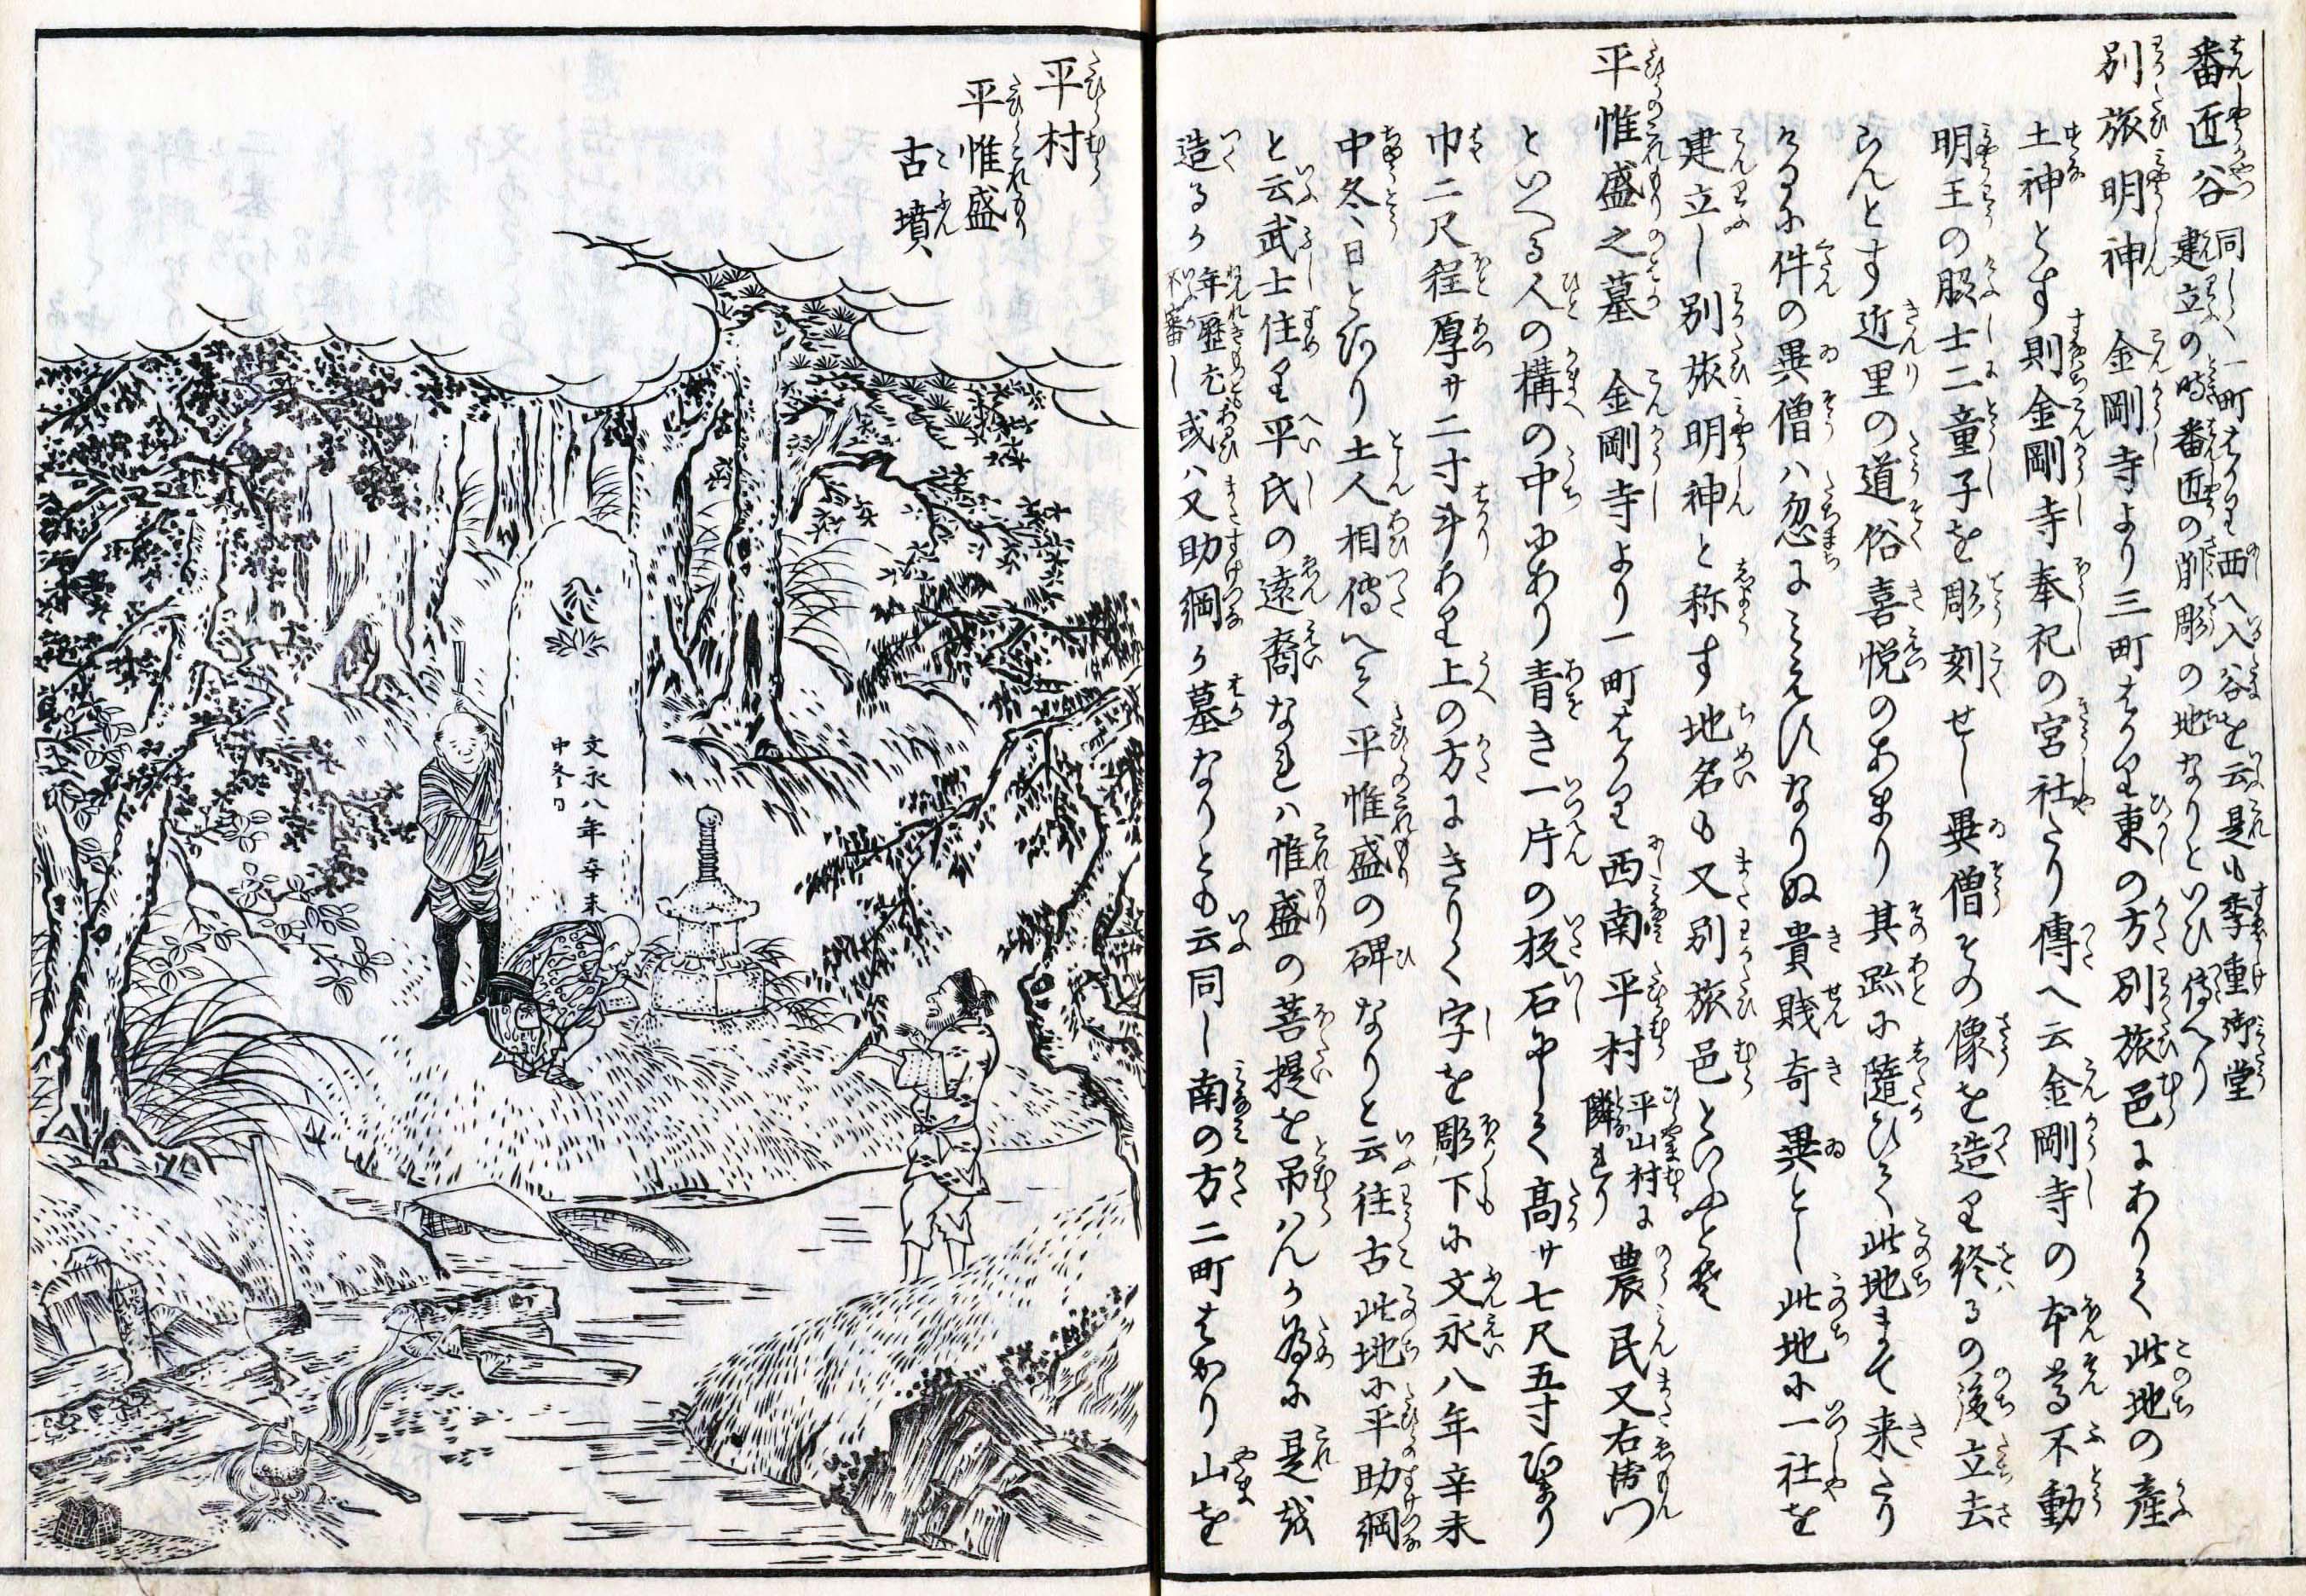 番匠谷 同しく一町はかり西へ入谷を云是も季重御堂
建立の時番匠の削彫の地なりといひ傳へり
別旅明神 金剛寺より三町はかり東の方別旅邑にありて此地の産
土神とす則金剛寺奉祀の宮社たり傳へ云金剛寺の本尊不動
明王の脇士二童子を彫刻せし異僧その像を造り終るの後立去
らんとす近里の道俗喜悦のあまり其跡に隨ひて此地まて来たり
けるに件の異僧ハ忽にみえすなりぬ貴賤奇異とし此地に一社を
建立し別旅明神と称す地名も又別旅邑といふとそ
平惟盛之墓 金剛寺より一町はかり西南平村 平山村に隣れり 農民又右衛門
といへる人の構の中にあり青き一片の板石にして高サ七尺五寸あまり
巾二尺程厚サ二寸斗あり上の方にきりく字を彫下に文永八年辛未
中冬日とあり土人相傳へて平惟盛の碑なりと云往古此地に平助綱
と云武士住り平氏の遠裔なれハ惟盛の菩提を吊ハんか為に是を
造るか 年歴尤不審し 或ハ又助綱か墓なりとも云同し南の方二町はかり山を
平村
平惟盛
古墳
文永八年辛未
中冬日